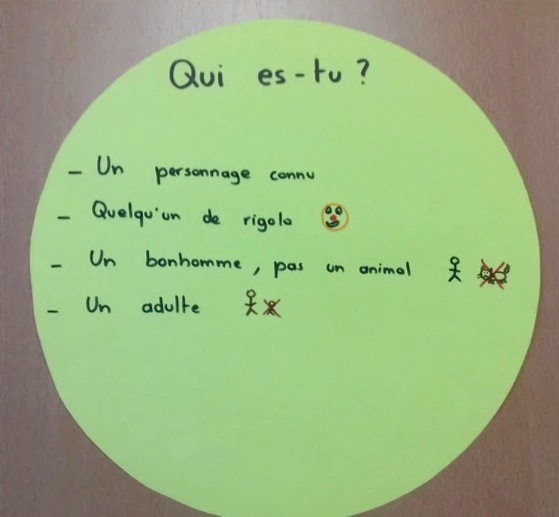 Qui es-tu ?
- Un personnage connu
- Quelqu'un de rigolo
- Un bonhomme, pas un animal
- Un adulte